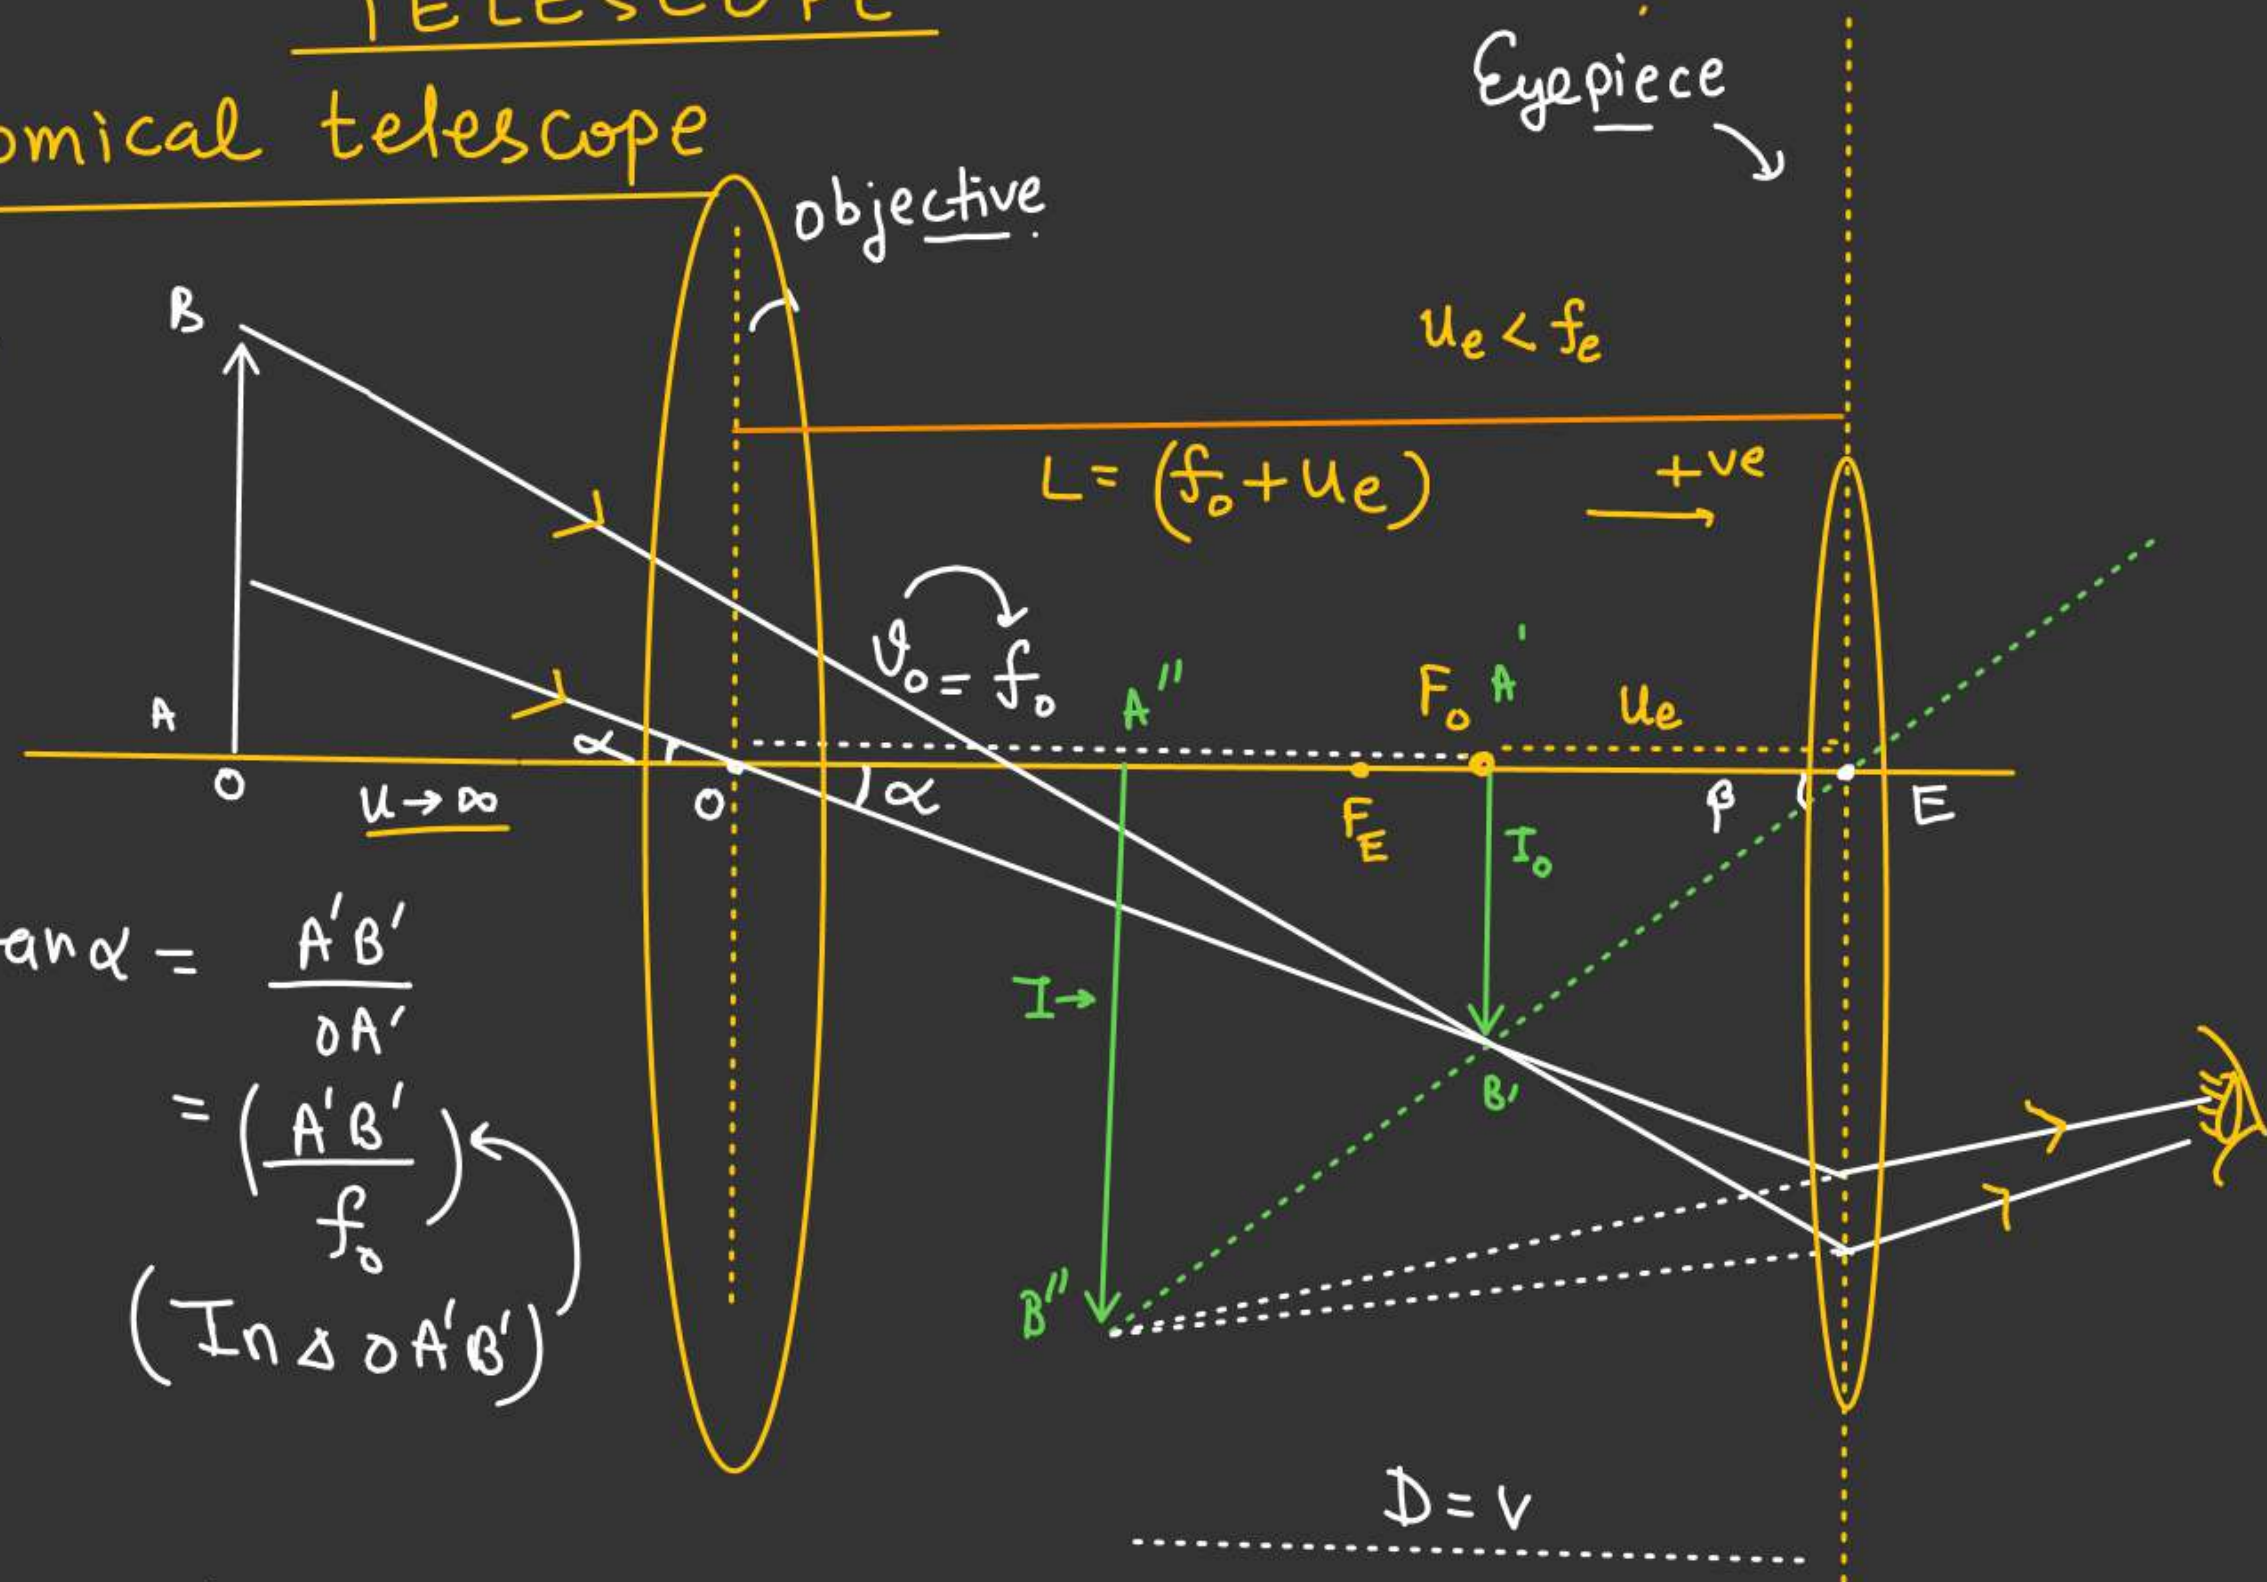 TELESCOPE
omical telescope
Eyepiece
objective.
B
u_e < f_e
L = (f_o + u_e)
+ve
v_o = f_o
A
α
A''
F_o A'
u_e
O
u → ∞
O
α
F_E
I_o
β
E
anα = A'B' / OA'
= (A'B' / f_o)
(In Δ OA'B')
I →
B'
B''
D = v